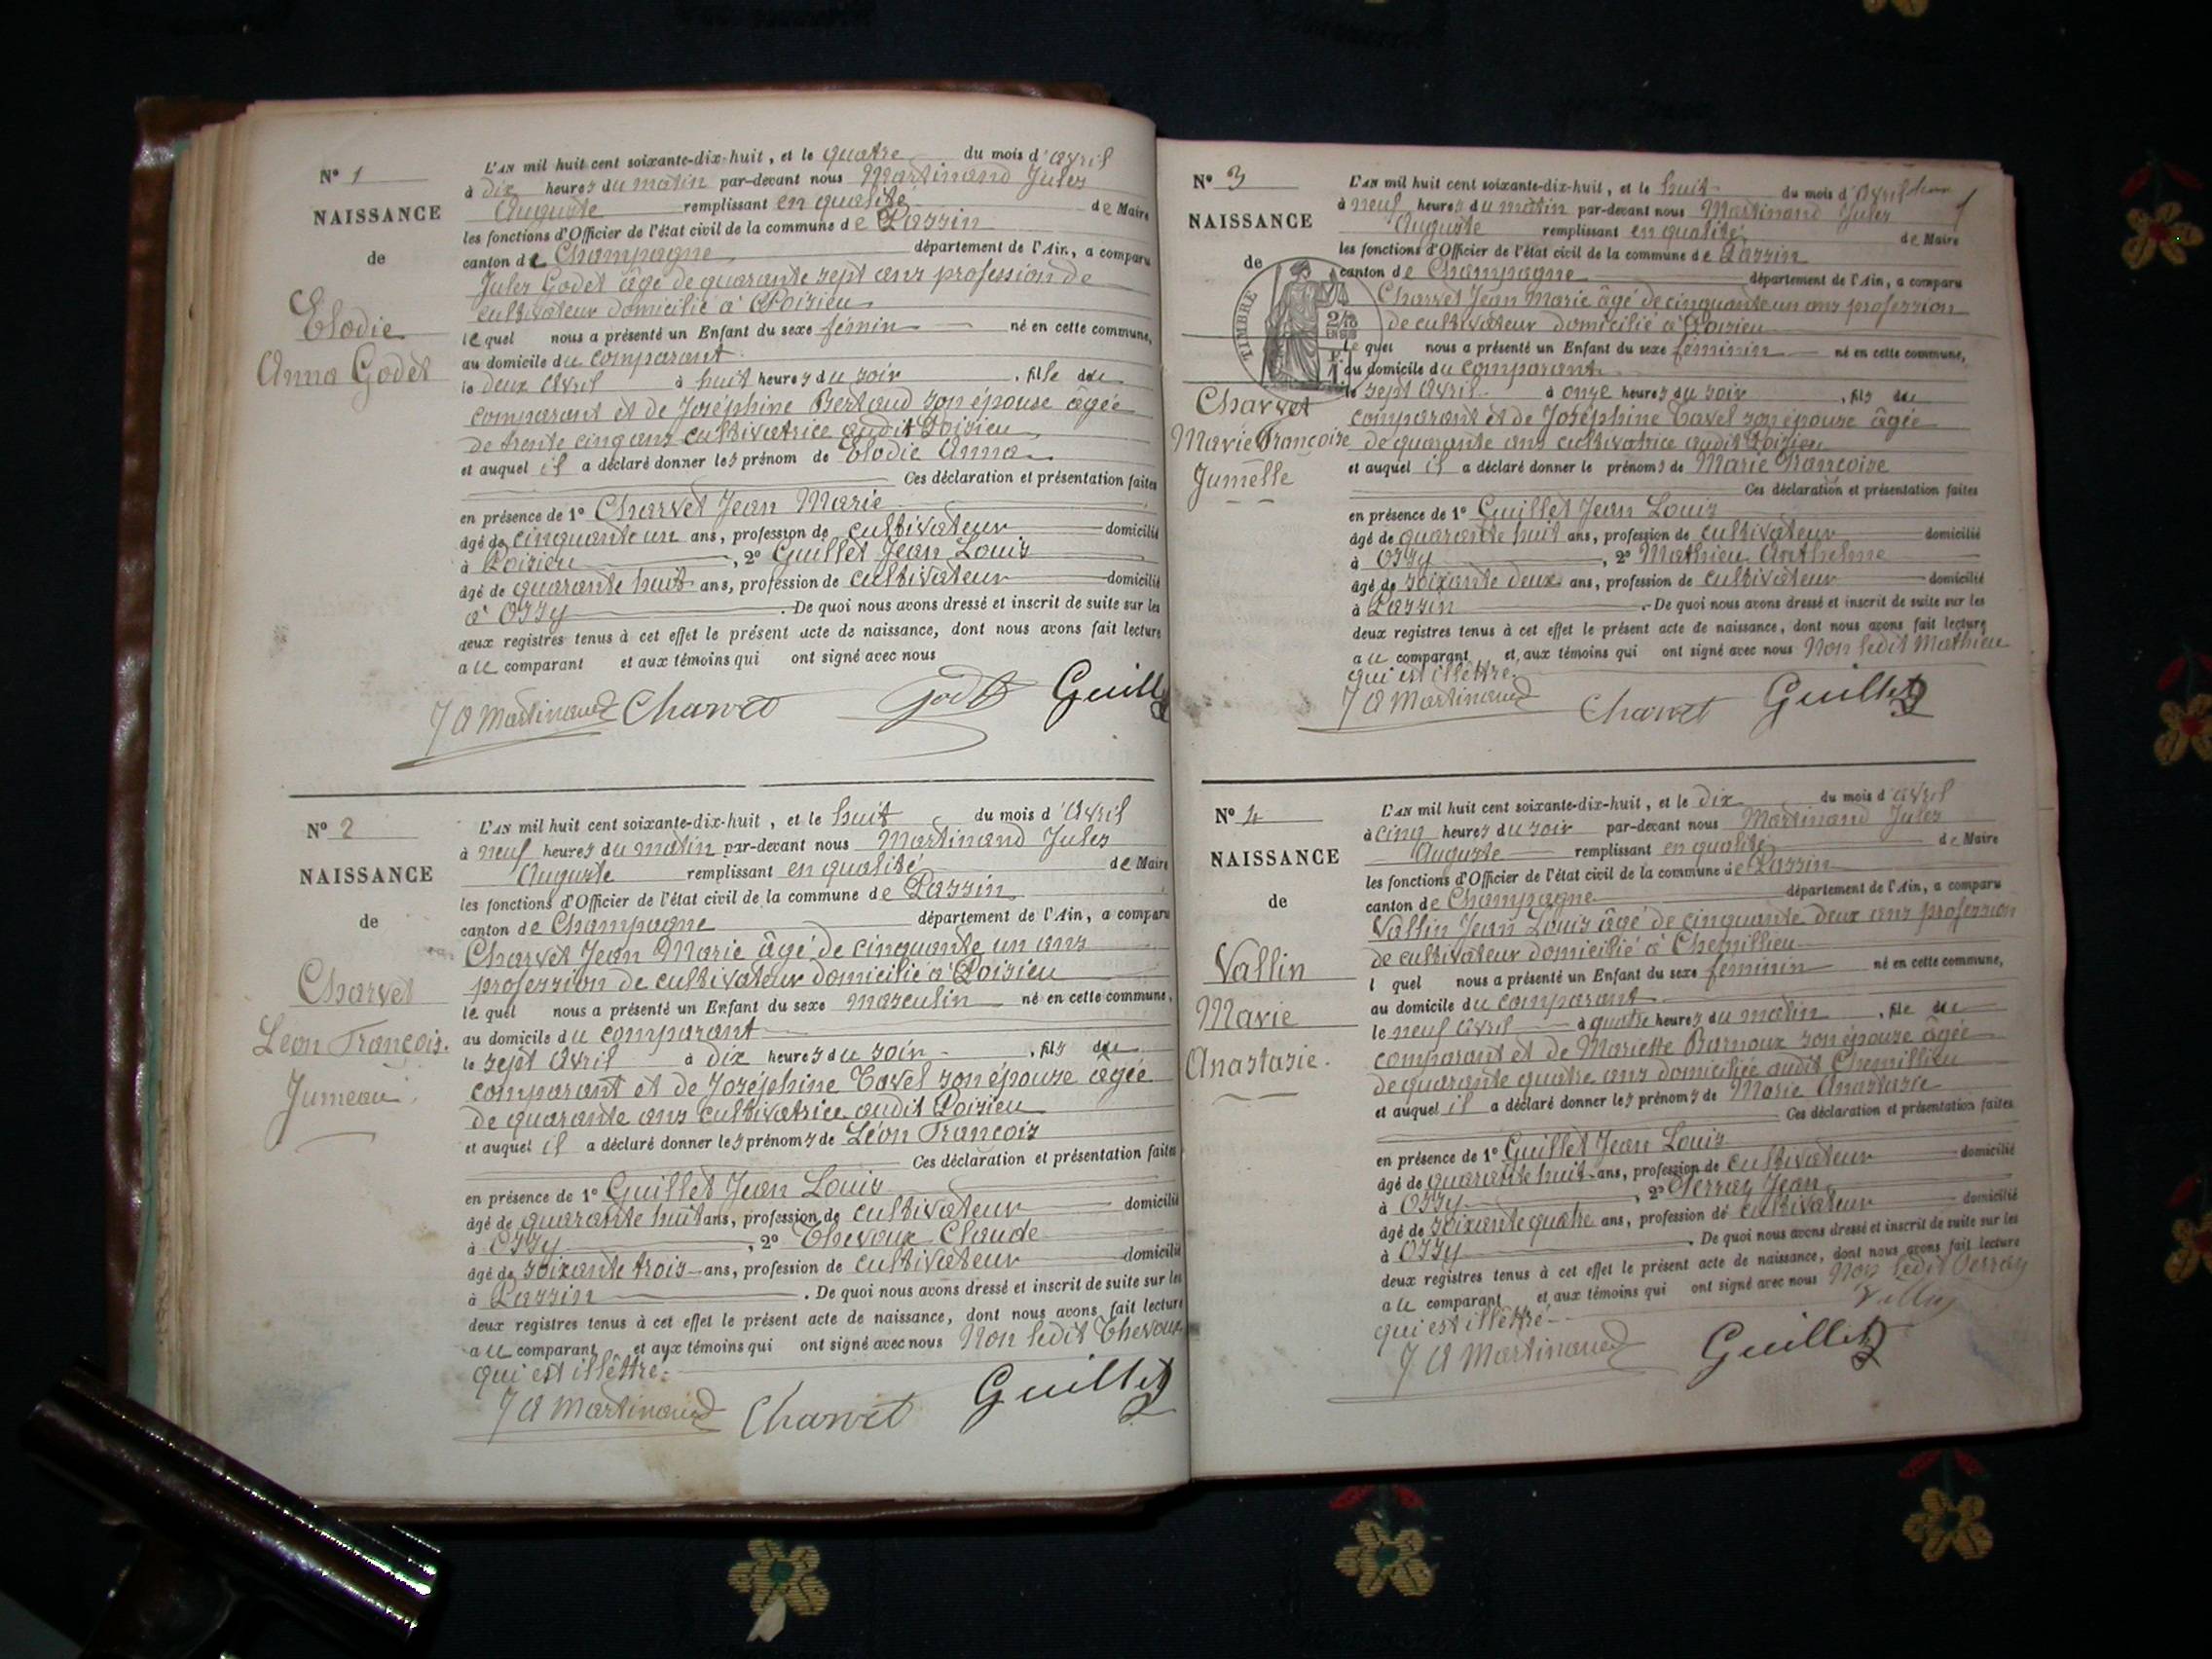 N° 1
NAISSANCE
de
Elodie
Anna Godet
L'AN mil huit cent soixante-dix-huit, et le quatre du mois d'avril
à dix heures du matin par-devant nous Martinand Jules
Auguste remplissant en qualité de Maire
les fonctions d'Officier de l'état civil de la commune de Passin
canton de Champagne département de l'Ain, a comparu
Jules Godet âgé de quarante sept ans profession de
cultivateur domicilié à Poisieu
lequel nous a présenté un Enfant du sexe féminin né en cette commune,
au domicile du comparant
le deux avril à huit heures du soir, fille du
comparant et de Joséphine Bertaud son épouse âgée
de trente cinq ans cultivatrice audit Poisieu
et auquel il a déclaré donner les prénom de Elodie Anna
Ces déclaration et présentation faites
en présence de 1° Charvet Jean Marie
âgé de cinquante un ans, profession de cultivateur domicilié
à Poisieu, 2° Guillet Jean Louis
âgé de quarante huit ans, profession de cultivateur domicilié
à Ossy. De quoi nous avons dressé et inscrit de suite sur les
deux registres tenus à cet effet le présent acte de naissance, dont nous avons fait lecture
au comparant et aux témoins qui ont signé avec nous
J A Martinand Charvet Godet Guillet
N° 2
NAISSANCE
de
Charvet
Léon François.
Jumeau
L'AN mil huit cent soixante-dix-huit, et le huit du mois d'Avril
à neuf heures du matin par-devant nous Martinand Jules
Auguste remplissant en qualité de Maire
les fonctions d'Officier de l'état civil de la commune de Passin
canton de Champagne département de l'Ain, a comparu
Charvet Jean Marie âgé de cinquante un ans
profession de cultivateur domicilié à Poisieu
lequel nous a présenté un Enfant du sexe masculin né en cette commune,
au domicile du comparant
le sept Avril à dix heures du soir, fils du
comparant et de Joséphine Tavel son épouse âgée
de quarante ans cultivatrice audit Poisieu
et auquel il a déclaré donner les prénoms de Léon François
Ces déclaration et présentation faites
en présence de 1° Guillet Jean Louis
âgé de quarante huit ans, profession de cultivateur domicilié
à Ossy, 2° Thevoux Claude
âgé de soixante trois ans, profession de cultivateur domicilié
à Passin. De quoi nous avons dressé et inscrit de suite sur les
deux registres tenus à cet effet le présent acte de naissance, dont nous avons fait lecture
au comparant et aux témoins qui ont signé avec nous Non ledit Thevoux
qui est illettré.
J A Martinand Charvet Guillet
N° 3
NAISSANCE
de
TIMBRE
Charvet
Marie Françoise
Jumelle
L'AN mil huit cent soixante-dix-huit, et le huit du mois d'Avril
à neuf heures du matin par-devant nous Martinand Jules
Auguste remplissant en qualité de Maire
les fonctions d'Officier de l'état civil de la commune de Passin
canton de Champagne département de l'Ain, a comparu
Charvet Jean Marie âgé de cinquante un ans profession
de cultivateur domicilié à Poisieu
lequel nous a présenté un Enfant du sexe féminin né en cette commune,
au domicile du comparant
le sept Avril à onze heures du soir, fils du
comparant et de Joséphine Tavel son épouse âgée
de quarante ans cultivatrice audit Poisieu
et auquel il a déclaré donner le prénoms de Marie Françoise
Ces déclaration et présentation faites
en présence de 1° Guillet Jean Louis
âgé de quarante huit ans, profession de cultivateur domicilié
à Ossy, 2° Mathieu Anthelme
âgé de soixante deux ans, profession de cultivateur domicilié
à Passin. De quoi nous avons dressé et inscrit de suite sur les
deux registres tenus à cet effet le présent acte de naissance, dont nous avons fait lecture
au comparant et aux témoins qui ont signé avec nous Non ledit Mathieu
qui est illettré.
J A Martinand Charvet Guillet
N° 4
NAISSANCE
de
Vallin
Marie
Anastasie.
L'AN mil huit cent soixante-dix-huit, et le dix du mois d'avril
à cinq heures du soir par-devant nous Martinand Jules
Auguste remplissant en qualité de Maire
les fonctions d'Officier de l'état civil de la commune de Passin
canton de Champagne département de l'Ain, a comparu
Vallin Jean Louis âgé de cinquante deux ans profession
de cultivateur domicilié à Chemillieu
l quel nous a présenté un Enfant du sexe féminin né en cette commune,
au domicile du comparant
le neuf avril à quatre heures du matin, fille du
comparant et de Mariette Barnoux son épouse âgée
de quarante quatre ans domiciliée audit Chemillieu
et auquel il a déclaré donner les prénoms de Marie Anastasie
Ces déclaration et présentation faites
en présence de 1° Guillet Jean Louis
âgé de quarante huit ans, profession de cultivateur domicilié
à Ossy, 2° Jean
âgé de soixante quatre ans, profession de cultivateur domicilié
à Ossy. De quoi nous avons dressé et inscrit de suite sur les
deux registres tenus à cet effet le présent acte de naissance, dont nous avons fait lecture
au comparant et aux témoins qui ont signé avec nous Non ledit
qui est illettré
J A Martinand Guillet